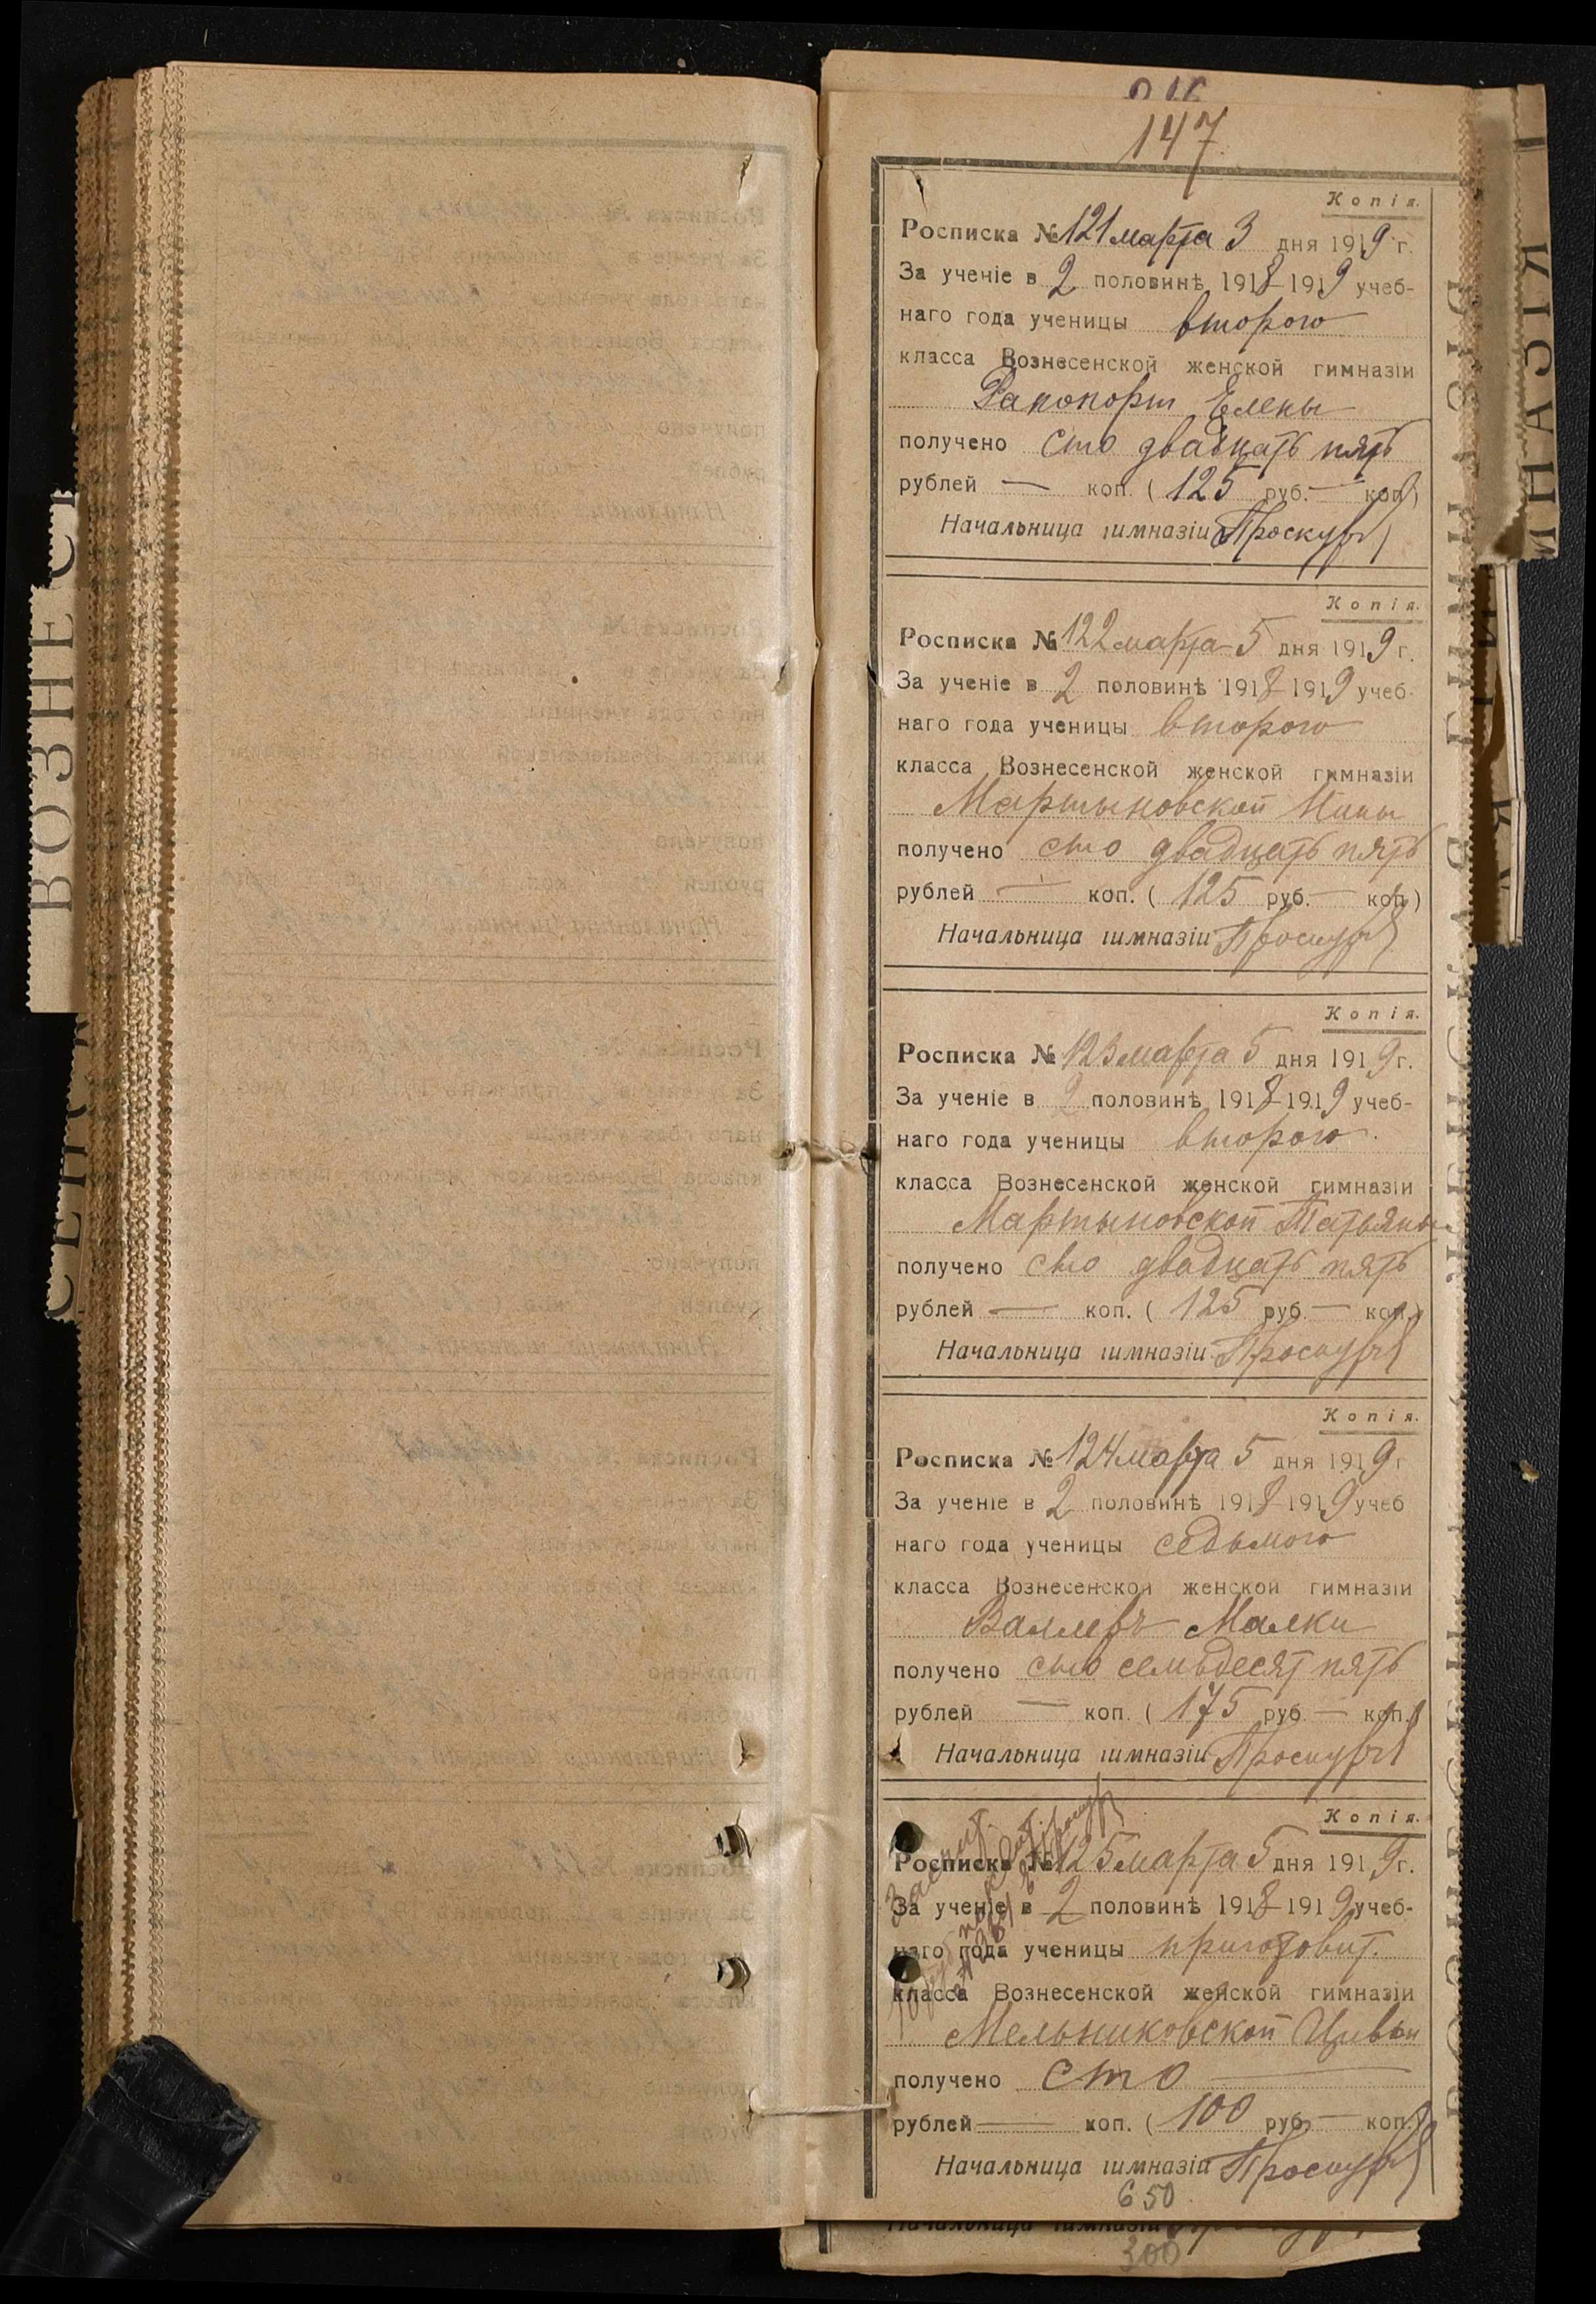 147
Копія.
Росписка № 121 марта 3 дня 1919 г.
За ученіе в 2 половинѣ 1918-1919 учеб-
наго года ученицы второго
класса Вознесенской женской гимназіи
Рапопорт Елены
получено сто двадцать пять
рублей — коп. ( 125 руб. — коп.)
Начальница гимназіи
Копія.
Росписка № 122 марта 5 дня 1919 г.
За ученіе в 2 половинѣ 1918-1919 учеб-
наго года ученицы второго
класса Вознесенской женской гимназіи
Мартыновской Нины
получено сто двадцать пять
рублей — коп. ( 125 руб. — коп.)
Начальница гимназіи
Копія.
Росписка № 123 марта 5 дня 1919 г.
За ученіе в 2 половинѣ 1918-1919 учеб-
наго года ученицы второго
класса Вознесенской женской гимназіи
Мартыновской Татьяны
получено сто двадцать пять
рублей — коп. ( 125 руб. — коп.)
Начальница гимназіи
Копія.
Росписка № 124 марта 5 дня 1919 г
За ученіе в 2 половинѣ 1918-1919 учеб
наго года ученицы седьмого
класса Вознесенской женской гимназіи
Малки
получено сто семьдесят пять
рублей — коп. ( 175 руб. — коп.)
Начальница гимназіи
Копія.
Росписка № 125 марта 5 дня 1919 г.
За ученіе в 2 половинѣ 1918-1919 учеб-
наго года ученицы приготовит.
класса Вознесенской женской гимназіи
Мельниковской Цивьи
получено сто —
рублей — коп. ( 100 руб. — коп.)
Начальница гимназіи
650
300
ВОЗНЕС